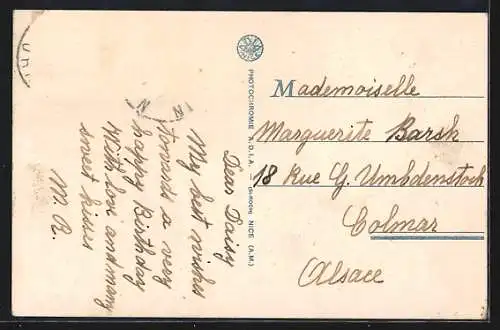 Dear Daisy
My best wishes
towards a very
happy Birthday
With love and many
sweet kisses
M. R.
PHOTOCHROMIE A.D.I.A. — NICE (A.M.)
Mademoiselle
Marguerite Barsh
18 Rue G. Umbdenstoch
Colmar
Alsace